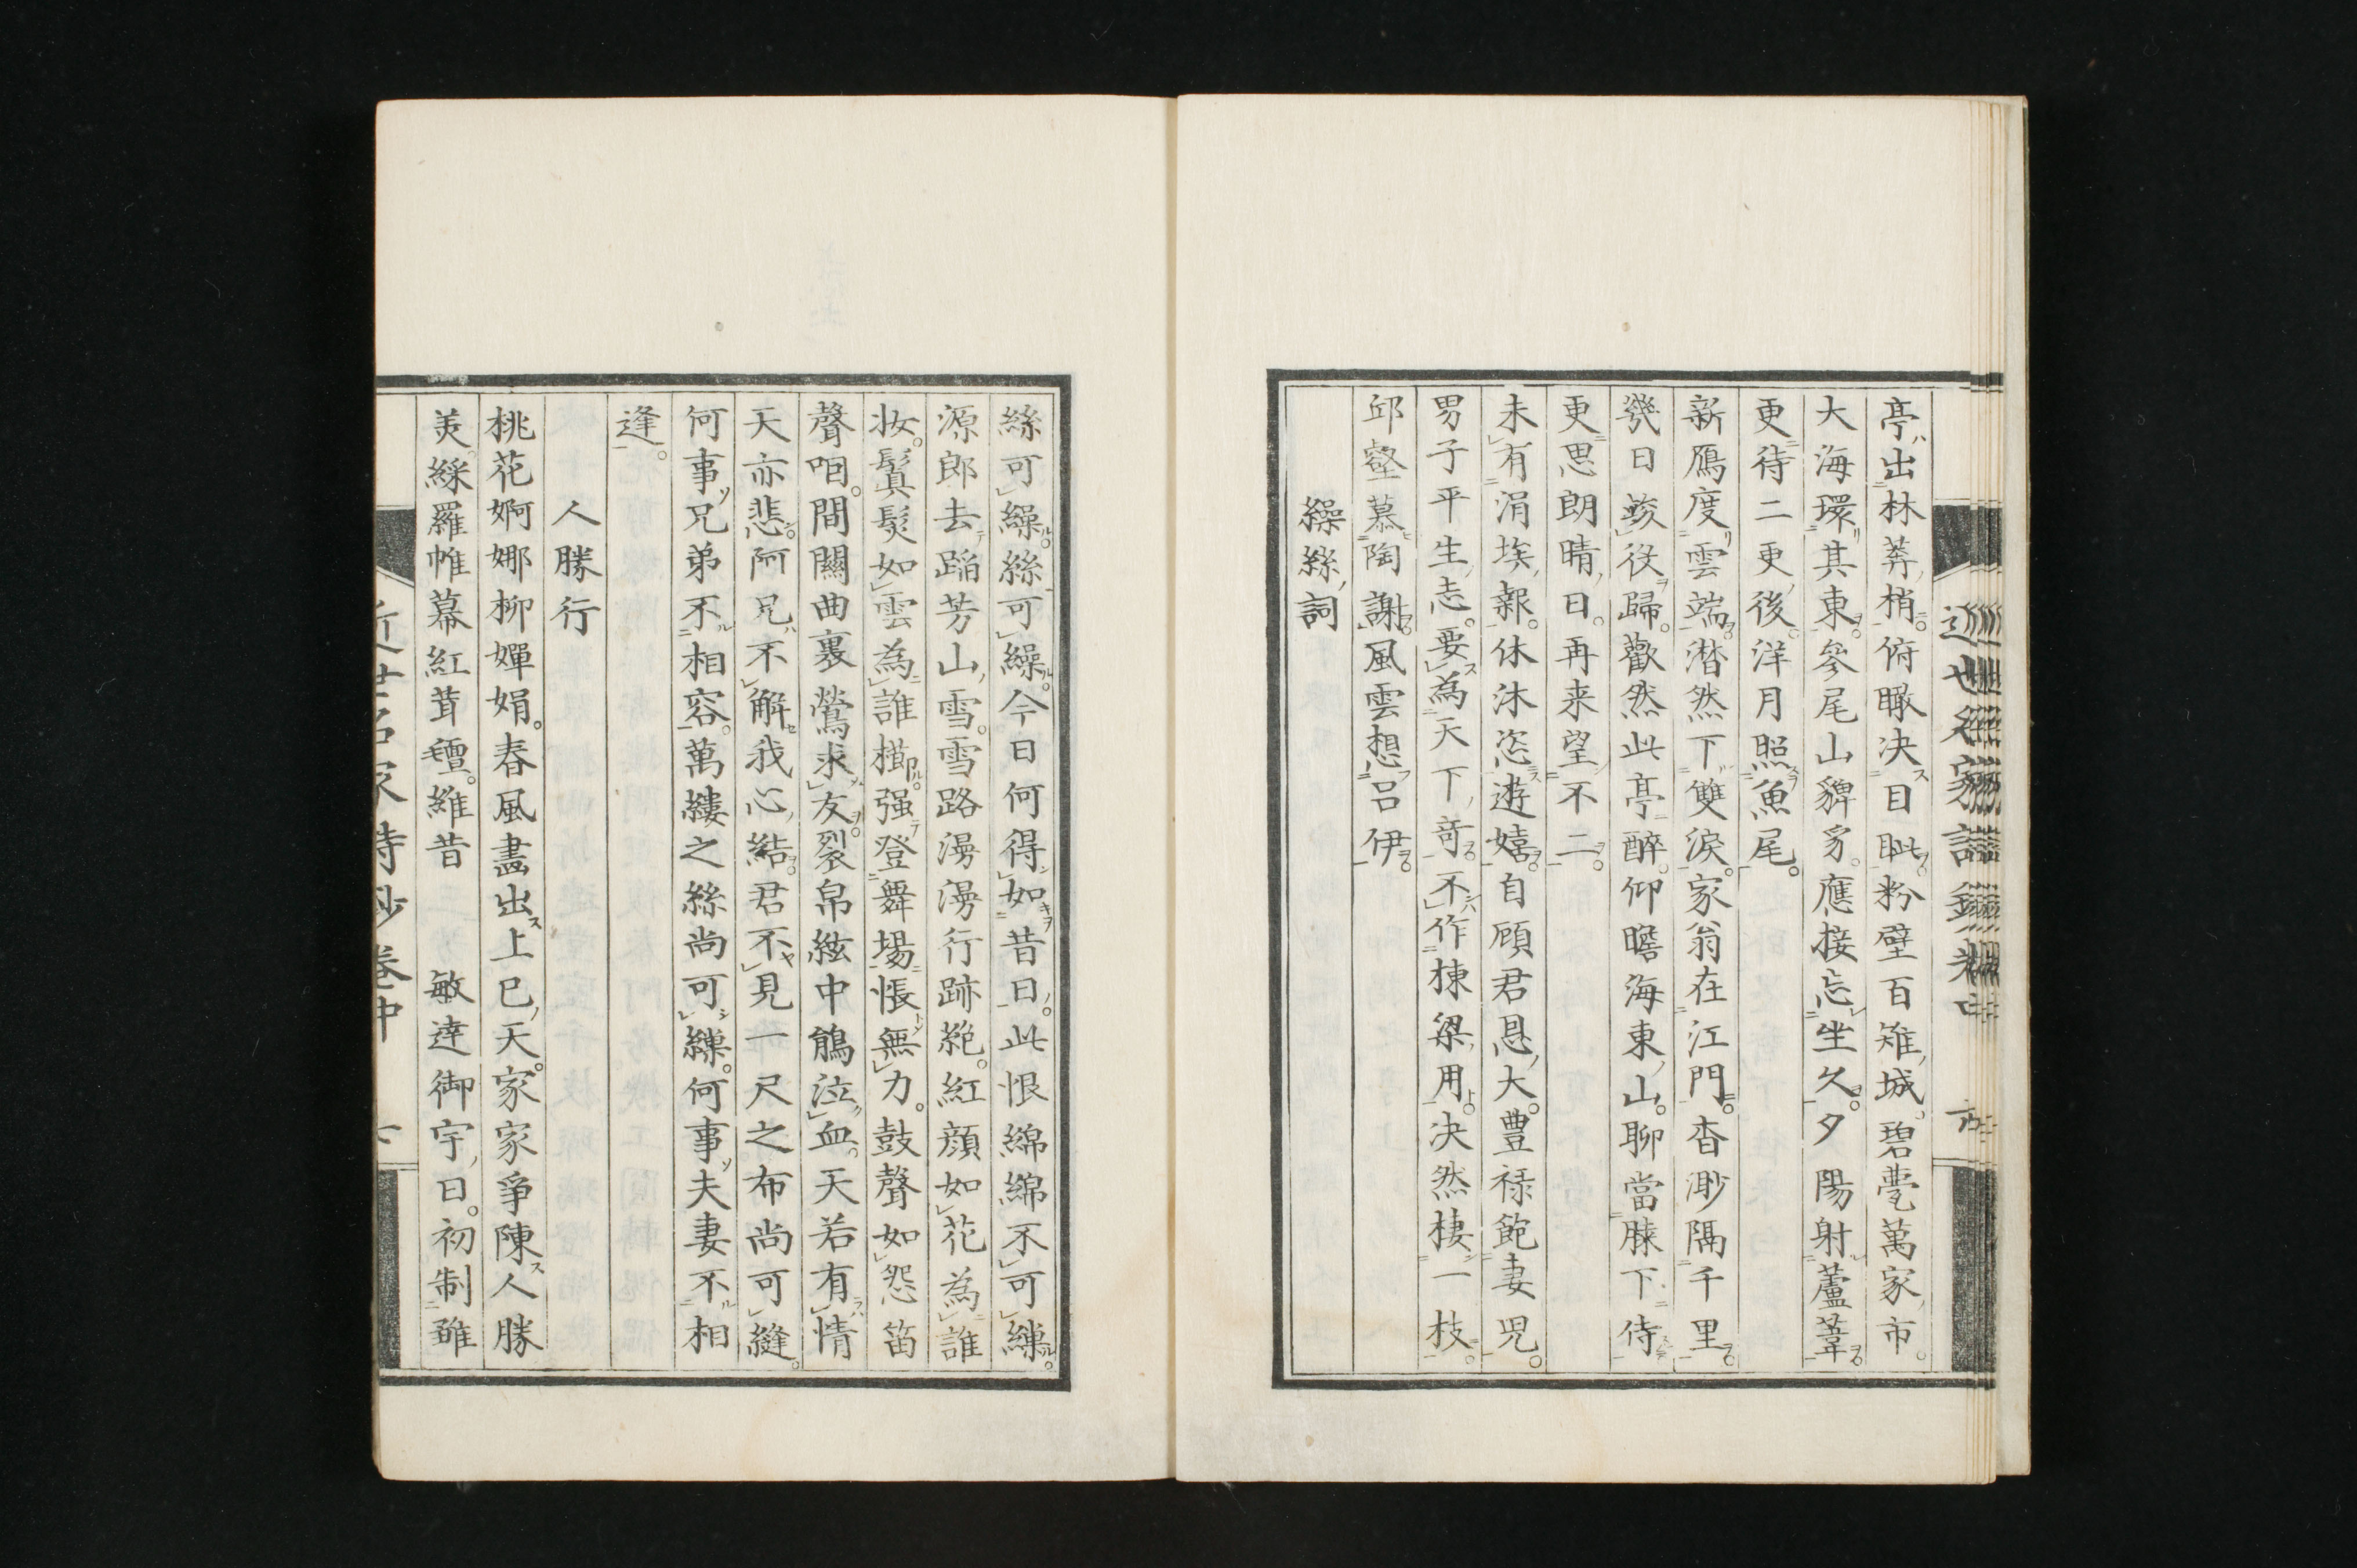 亭出林莽梢。俯瞰决目眦。粉壁百雉城。碧甍萬家市。
大海環其東。參尾山貏豸。應接忘坐久。夕陽射蘆葦。
更待二更後。洋月照魚尾。
新鴈度雲端。潸然下雙淚。家翁在江門。杳渺隔千里。
幾日竣役歸。歡然此亭醉。仰瞻海東山。聊當膝下侍
更思朗晴日。再来望不二。
未有涓埃報。休沐恣遊嬉。自顧君恩大。豊祿飽妻兒。
男子平生志。要為天下奇。不作棟梁用。决然棲一枝。
邱壑慕陶謝。風雲想呂伊。
繰絲詞
絲可繰。絲可繰。今日何得如昔日。此恨綿綿不可縛。
源郎去蹈芳山雪。雪路漫漫行跡絶。紅顔如花為誰
妆。鬒髮如雲為誰櫛。强登舞場悵無力。鼓聲如怨笛
聲咽。間關曲裏鶯求友。裂帛絃中鵑泣血。天若有情
天亦悲。阿兄不解我心結。君不見一尺之布尚可縫。
何事兄弟不相容。萬縷之絲尚可縛。何事夫妻不相
逢。
人勝行
桃花婀娜柳嬋娟。春風畵出上巳天。家家爭陳人勝
羙。綵羅帷幕紅茸氊。維昔 敏達御宇日。初制雖
近世名家詩鈔卷中 七